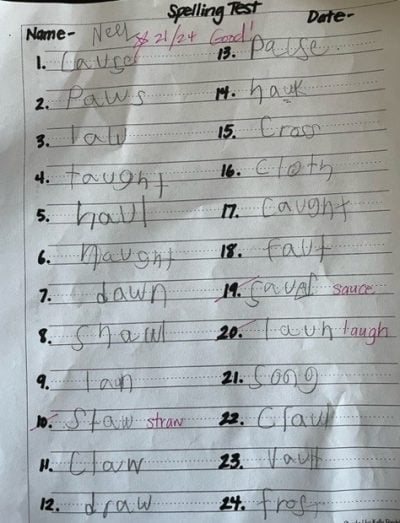 Spelling Test
Name- Neel Date-
21/24 Good!
1. Cause
2. Paws
3. law
4. taught
5. haul
6. Naught
7. dawn
8. Shawl
9. lawn
10. Staw straw
11. Claw
12. draw
13. Pause
14. hawk
15. Cross
16. Cloth
17. Caught
18. fault
19. sauce
20. lauh laugh
21. Song
22. Claw
23. Vault
24. frost